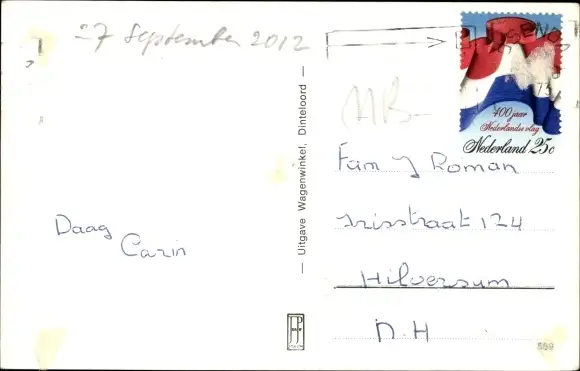 27 September 2012
400 jaar
Nederlandse vlag
Nederland 25c
Daag
Carin
— Uitgave Wagenwinkel, Dinteloord —
Fam J Roman
Irisstraat 124
Hilversum
N.H
569